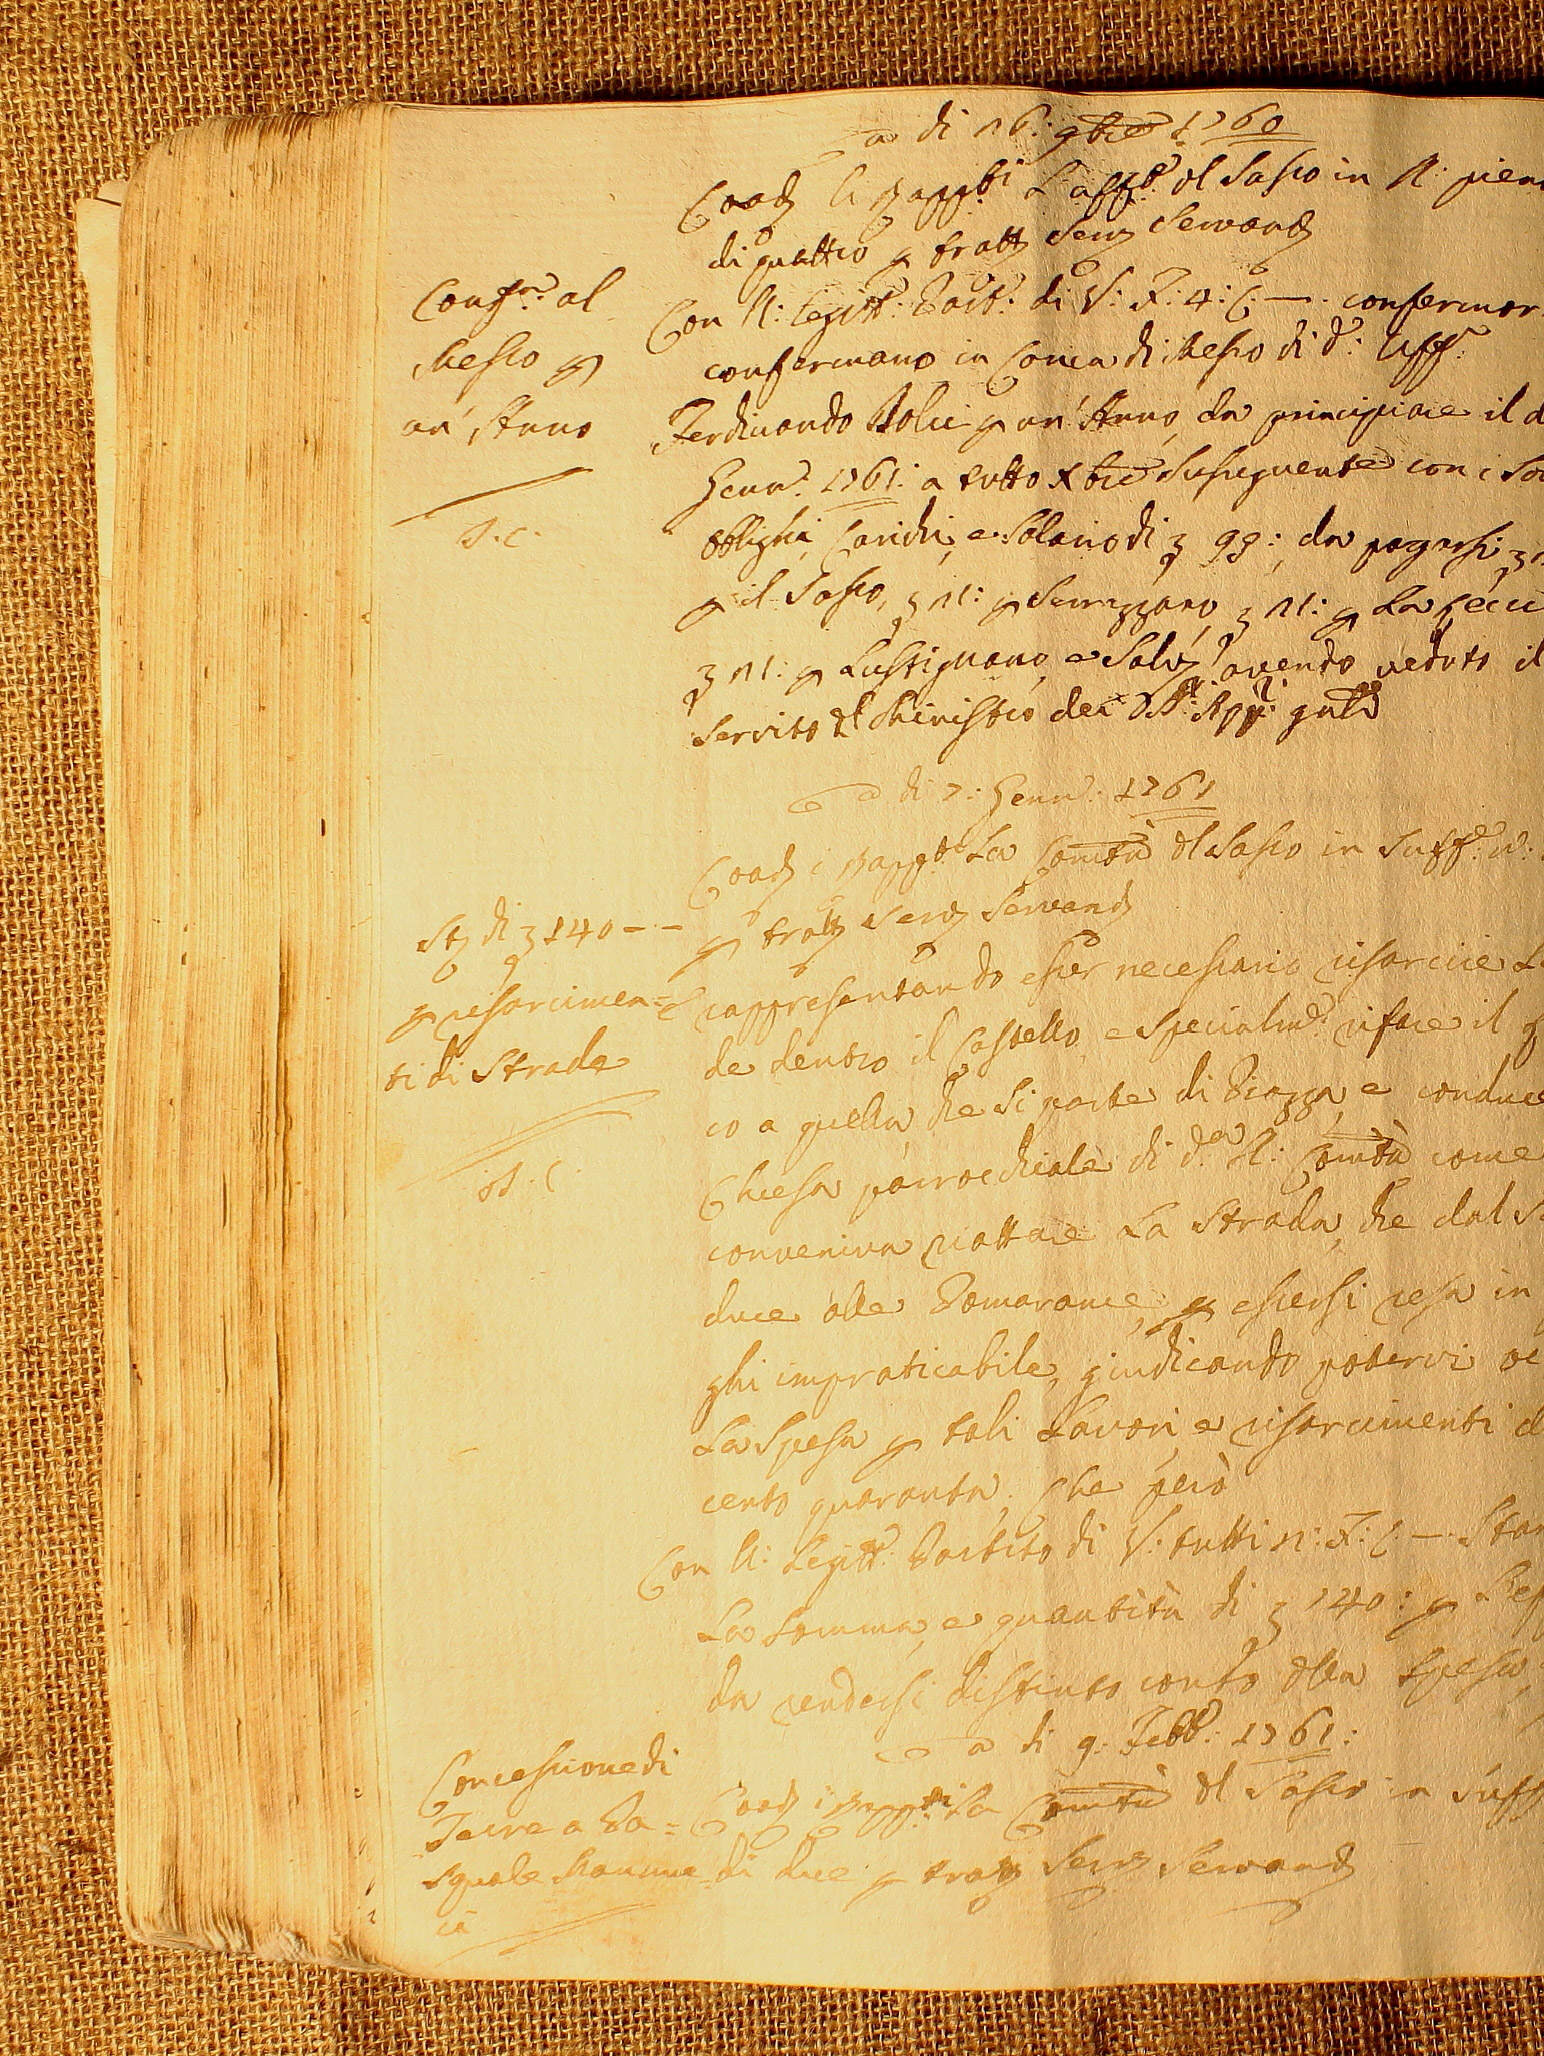 a di 16: 9bre 1760
Coad: li Rapp:ti L'uff:o del Sasso in N: pien
di quattro p tratt: Serv: Servand:
Conf:ne al
Messo p
un' Anno
S. C.
Con N: legitt: Part: di V: F: 4: C: —. confermor
confermano in Conca di Messo di d: Uff:
Ferdinando p un' Anno, da principiare il d
Genn: 1761: a tutto Xbre Susseguente con i So
obblighi, Carichi, e Salario di 99:, da pagarsi
p il Sasso, 11: p Serrazzano, 11: p La Lecci
11: p Lustignano, e Salv: avendo veduto il
Servito del Ministro dei Rapp:
a di 7: Genn: 1761
Coad: i Rapp:ti La Comtà del Sasso in Suff: n:
p tratt: Serv: Servand:
St: di 140 - -
p risarcimen=
ti di Strade
S. C.
E rappresentando esser necessario risarcire L
de dentro il Castello, e Specialm:e rifare il
co a quella che Si parte di Piazza, e conduce
Chiesa parrochiale di d:a N: Comtà come
conveniva riattare La Strada, che dal S
duce alle Pomarance, p essersi resa in
ghi impraticabile, giudicando potervi oc
La Spesa p tali Lavori, e risarcimenti d
cento quaranta. Che però
Con N: Legitt: Partito di V: tutti N: F: C: — Stan
La Somma, e quantità di 140: p L'ef
da rendersi distinto conto della Spesa,
a di 9: Febb: 1761:
Concessione di
Terre a Pa=
squale Mannuc=
ci
Coad: i Rapp:ti La Comtà del Sasso in Suff
di due p tratt: Serv: Servand: